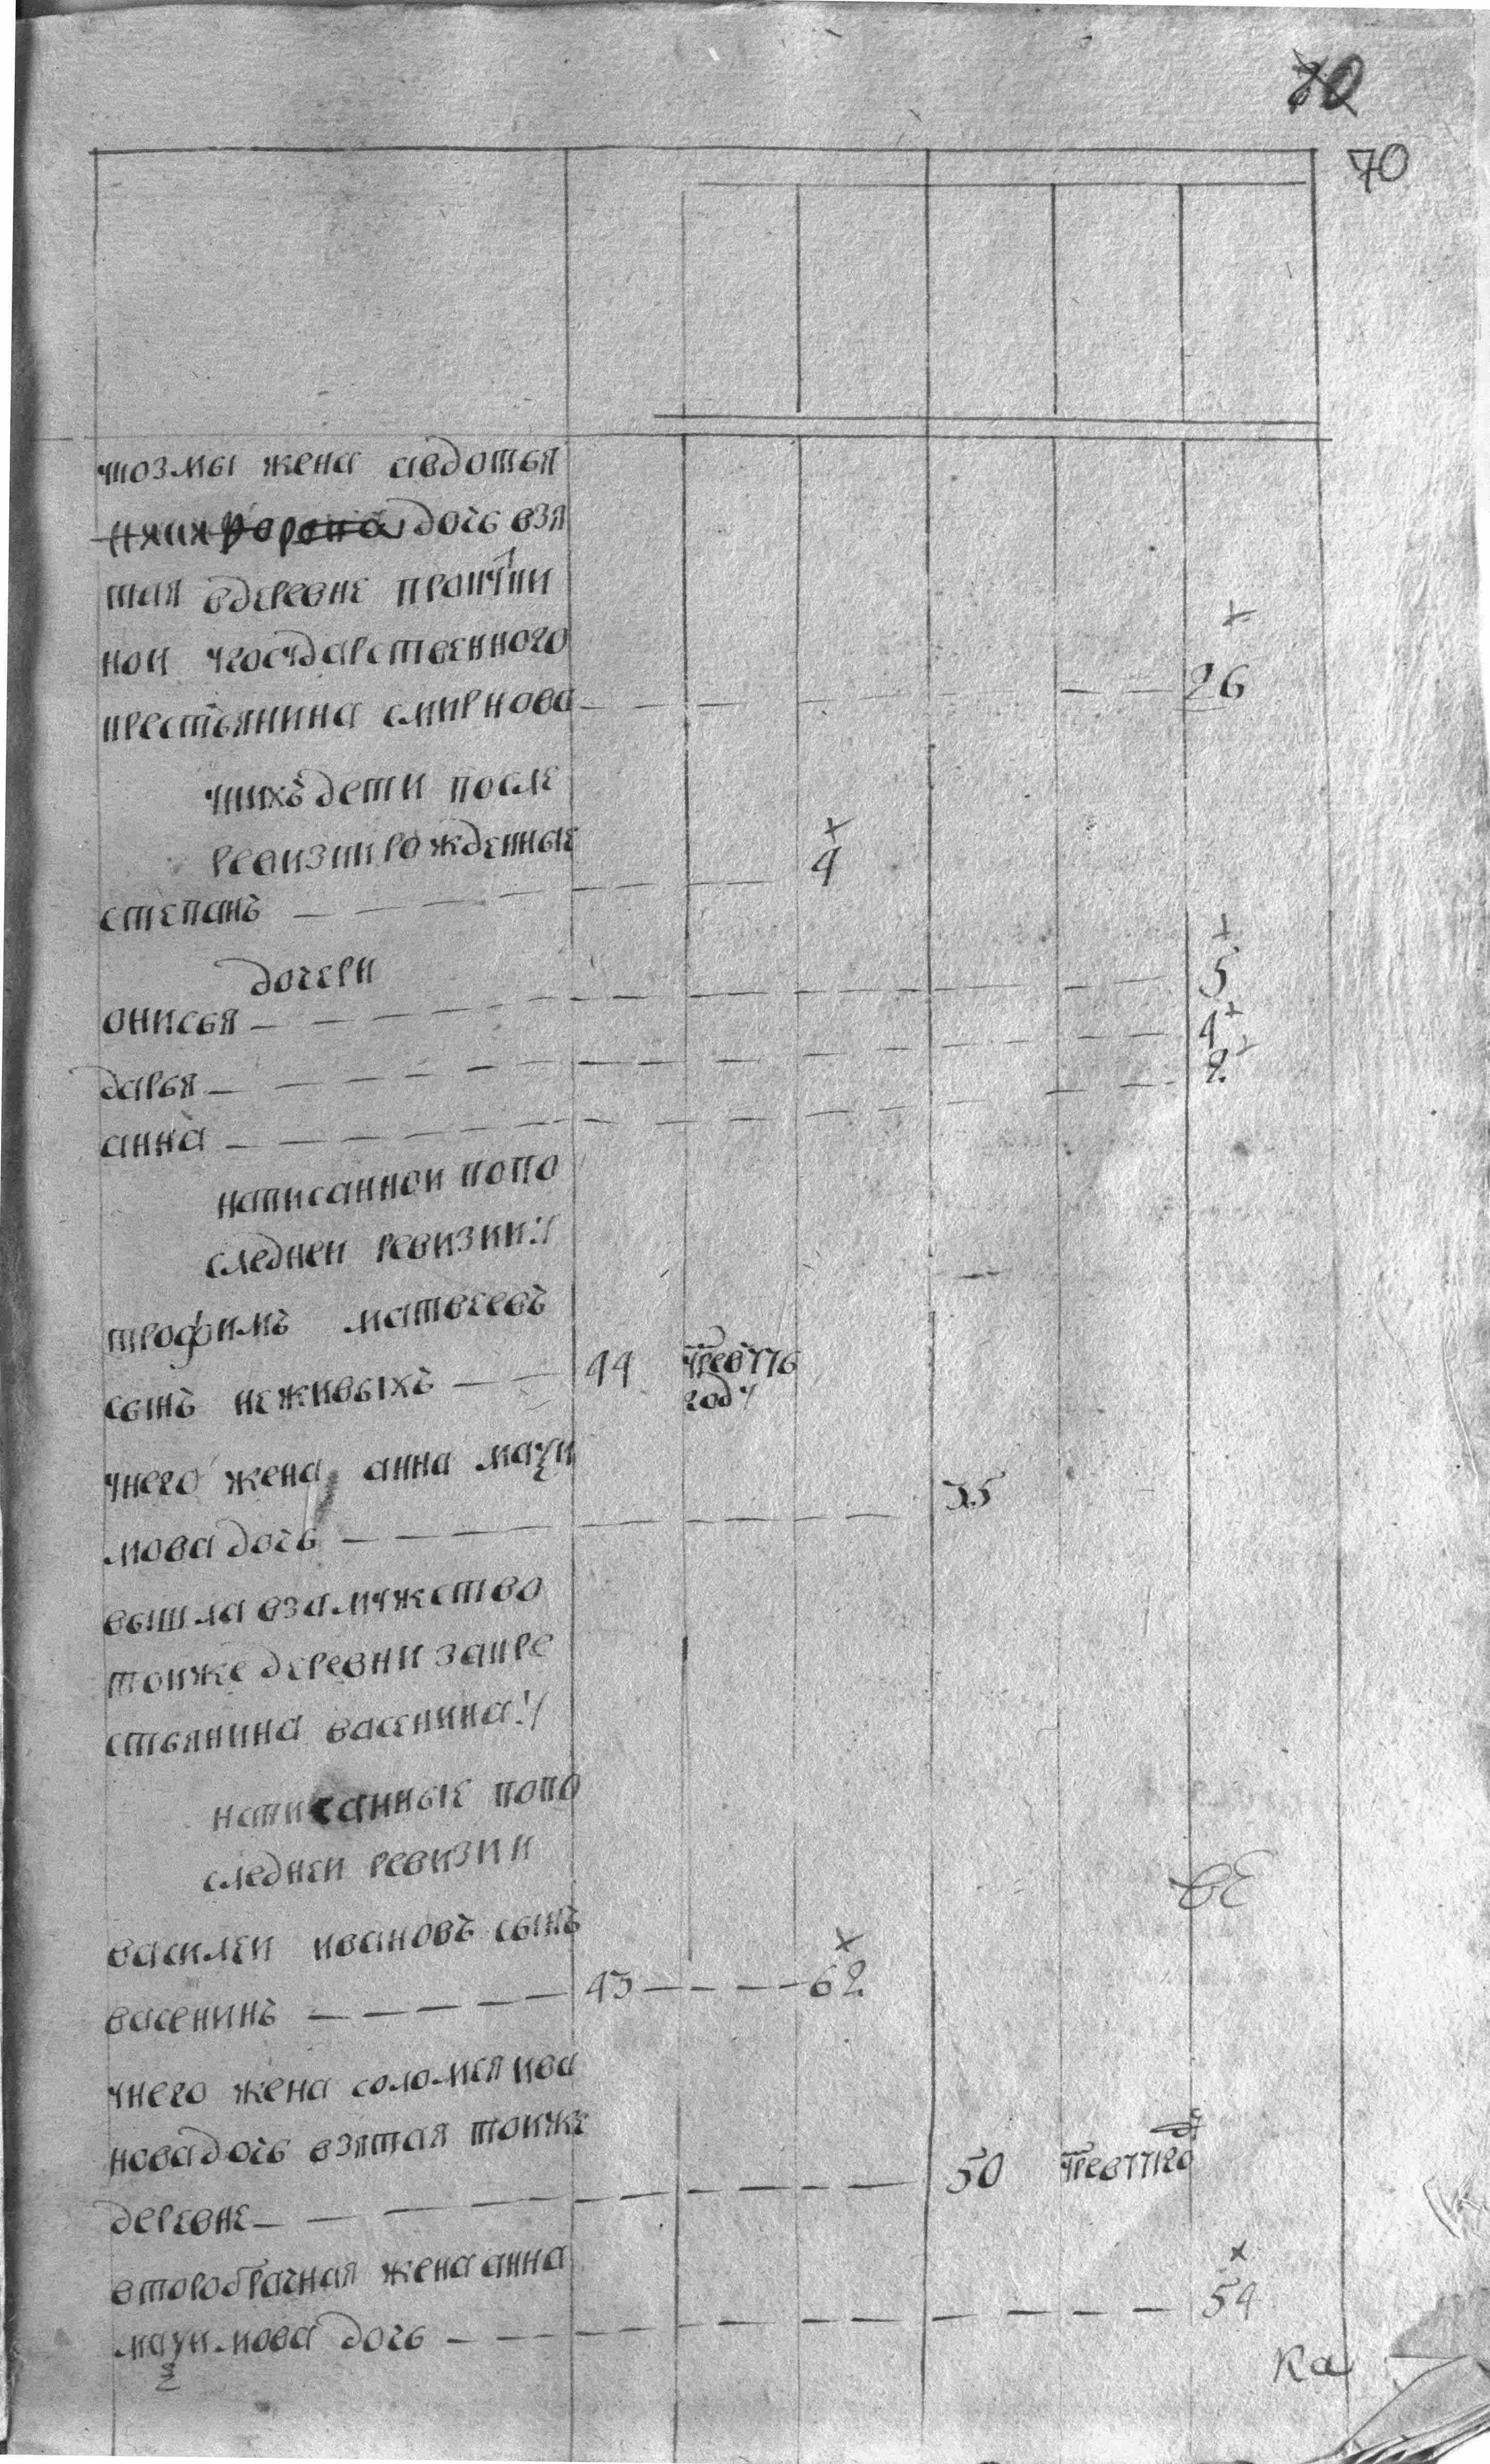 70
70
укозмы жена авдотья
никифорова дочь взя
тая вдеревне
ной угосударственного
крестьянина смирнова 26
унихъ дети после
ревизии рожденные
степанъ 4
дочери
онисья 5
дарья 4
анна 2
написанной попо
следней ревизии:/
трофимъ матвеевъ
сынъ неживыхъ 44 умре в 776
году
унего жена анна макси
мова дочь 35
вышла взамужество
тоиже деревни за кре
стьянина васенина:/
написанные попо
следней ревизии
василей ивановъ сынъ
васенинъ 43 62
унего жена соломия ива
нова дочь взятая тоиже
деревне 50
второбрачная жена анна
максимова дочь 54
Ка